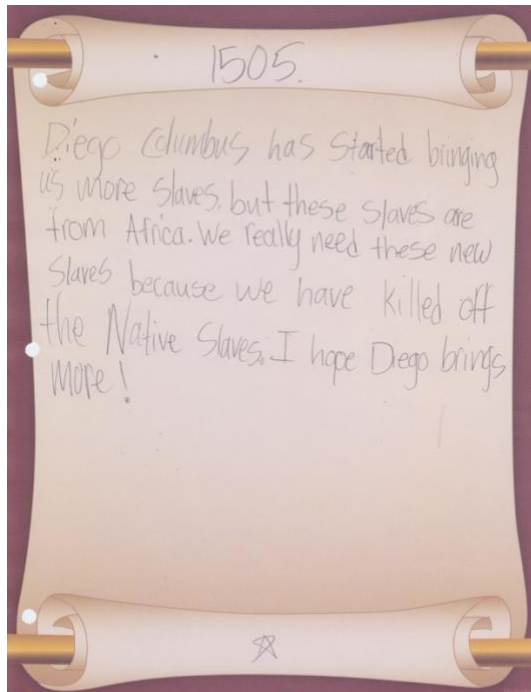 1505.
Diego Columbus has started bringing
us more slaves. but these slaves are
from Africa. We really need these new
slaves because we have killed off
the Native Slaves. I hope Diego brings
more!